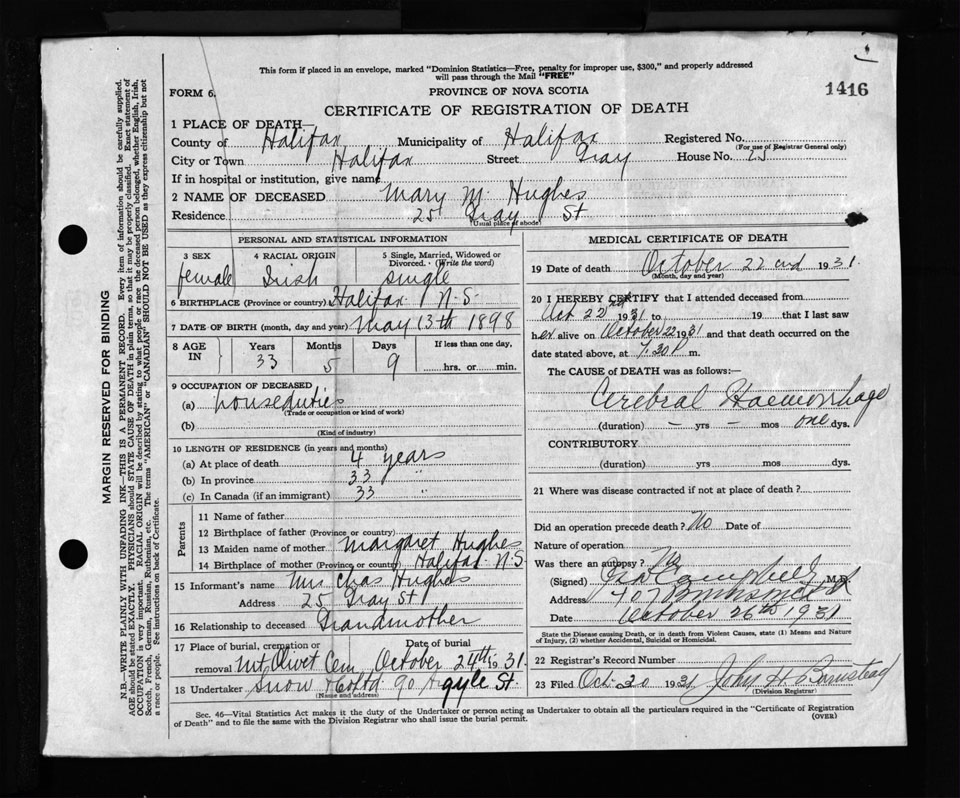 This form if placed in an envelope, marked "Dominion Statistics—Free, penalty for improper use, $300," and properly addressed
will pass through the Mail "FREE"
FORM 6.
PROVINCE OF NOVA SCOTIA
1416
CERTIFICATE OF REGISTRATION OF DEATH
1 PLACE OF DEATH—
County of Halifax Municipality of Halifax Registered No.
(For use of Registrar General only)
City or Town Halifax Street Gray House No. 25
If in hospital or institution, give name
2 NAME OF DECEASED Mary M. Hughes
Residence 25 Gray St
(Usual place of abode)
PERSONAL AND STATISTICAL INFORMATION
3 SEX 4 RACIAL ORIGIN 5 Single, Married, Widowed or
Divorced. (Write the word)
female Irish single
6 BIRTHPLACE (Province or country) Halifax N.S.
7 DATE OF BIRTH (month, day and year) May 13th 1898
8 AGE IN Years Months Days If less than one day,
33 5 9 hrs. or min.
9 OCCUPATION OF DECEASED
(a) houseduties
(Trade or occupation or kind of work)
(b)
(Kind of industry)
10 LENGTH OF RESIDENCE (in years and months)
(a) At place of death 4 years
(b) In province 33 "
(c) In Canada (if an immigrant) 33 "
Parents
11 Name of father
12 Birthplace of father (Province or country)
13 Maiden name of mother Margaret Hughes
14 Birthplace of mother (Province or country) Halifax N.S.
15 Informant's name Mrs Chas Hughes
Address 25 Gray St
16 Relationship to deceased Grandmother
17 Place of burial, cremation or Date of burial
removal Mt. Olivet Cem October 24th 1931
18 Undertaker Snow & Co Ltd 90 Argyle St.
(Name and address)
MEDICAL CERTIFICATE OF DEATH
19 Date of death October 22nd 1931
(Month, day and year)
20 I HEREBY CERTIFY that I attended deceased from
Oct 22nd 1931 to 19 that I last saw
her alive on October 22 1931 and that death occurred on the
date stated above, at 7.30 P m.
The CAUSE of DEATH was as follows:—
Cerebral Haemorrhage
(duration) — yrs — mos one dys.
CONTRIBUTORY
(duration) yrs mos dys.
21 Where was disease contracted if not at place of death?
Did an operation precede death? No Date of
Nature of operation
Was there an autopsy? No
(Signed) Campbell M.D.
Address 407
Date October 26th 1931
State the Disease causing Death, or in death from Violent Causes, state (1) Means and Nature
of Injury, (2) whether Accidental, Suicidal or Homicidal.
22 Registrar's Record Number
23 Filed Oct. 30 1931 John H. Barnstead
(Division Registrar)
Sec. 46—Vital Statistics Act makes it the duty of the Undertaker or person acting as Undertaker to obtain all the particulars required in the "Certificate of Registration
of Death" and to file the same with the Division Registrar who shall issue the burial permit.
(OVER)
MARGIN RESERVED FOR BINDING
N.B.—WRITE PLAINLY WITH UNFADING INK—THIS IS A PERMANENT RECORD. Every item of information should be carefully supplied.
AGE should be stated EXACTLY. PHYSICIANS should STATE CAUSE OF DEATH in plain terms, so that it may be properly classified. Exact statement of
OCCUPATION is very important. RACIAL ORIGIN will be described by stating to what people or race the deceased person belonged, whether English, Irish,
Scotch, French, German, Russian, Ruthenian, etc. The terms "AMERICAN" or "CANADIAN" SHOULD NOT BE USED as they express citizenship but not
a race or people. See Instructions on back of Certificate.